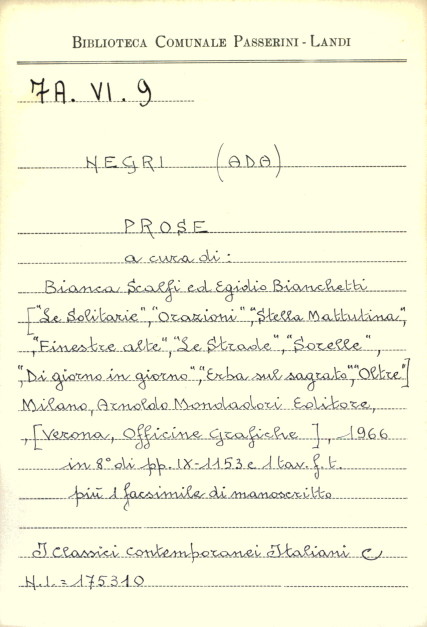 BIBLIOTECA COMUNALE PASSERINI - LANDI
7A. VI. 9
NEGRI (ADA)
PROSE
a cura di:
Bianca Scalfi ed Egidio Bianchetti
["Le Solitarie", "Orazioni", "Stella Mattutina",
"Finestre alte", "Le Strade", "Sorelle",
"Di giorno in giorno", "Erba sul sagrato", "Oltre"]
Milano, Arnoldo Mondadori Editore,
, [Verona, Officine Grafiche ], 1966
in 8° di pp. IX-1153 e 1 tav. f. t.
più 1 facsimile di manoscritto
I Classici Contemporanei Italiani
N.I. = 175310